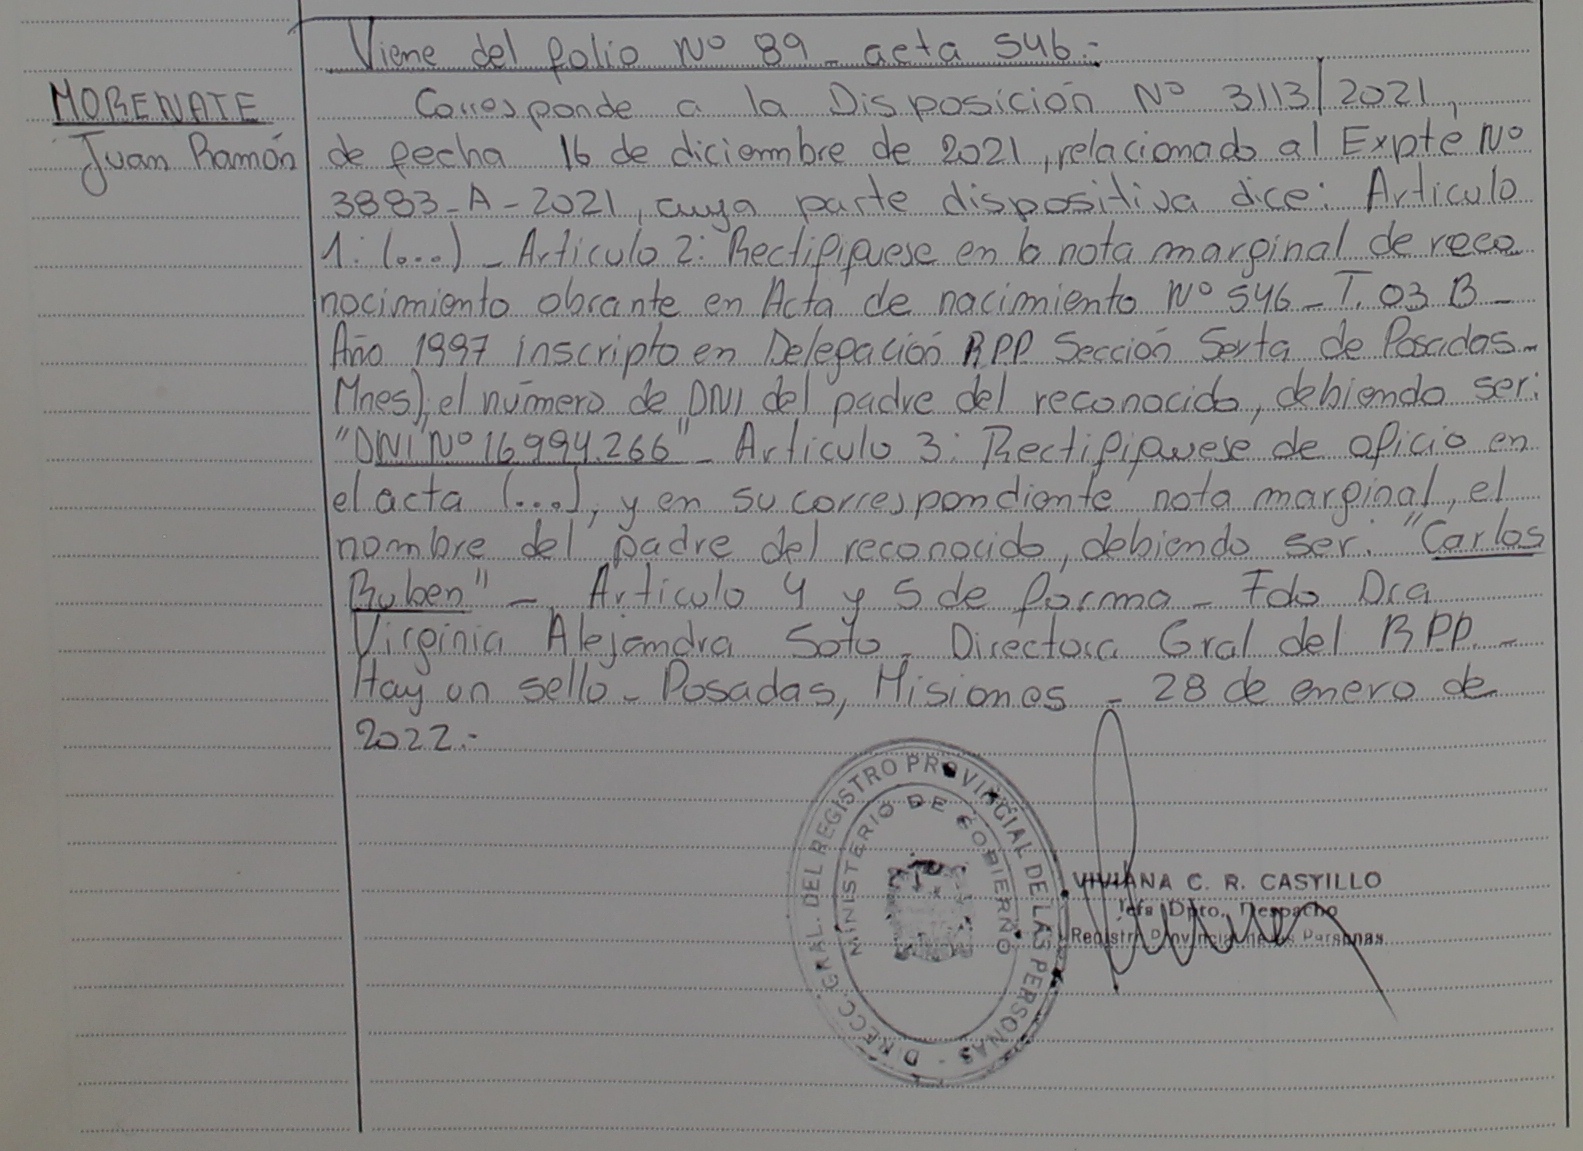 Viene del folio Nº 89 - acta 546.-
MORENATE
Juan Ramón
Corresponde a la Disposición Nº 3113/2021,
de fecha 16 de diciembre de 2021, relacionado al Expte Nº
3883-A-2021, cuya parte dispositiva dice: Articulo
1: (...) - Articulo 2: Rectifíquese en la nota marginal de reco
nocimiento obrante en Acta de nacimiento Nº 546 - T. 03 B -
Año 1997 inscripto en Delegación RPP Sección Sexta de Posadas -
Mnes), el número de DNI del padre del reconocido, debiendo ser:
"DNI Nº 16.994.266" - Articulo 3: Rectifíquese de oficio en
el acta (...), y en su correspondiente nota marginal, el
nombre del padre del reconocido, debiendo ser: "Carlos
Ruben" - Articulo 4 y 5 de forma - Fdo Dra
Virginia Alejandra Soto - Directora Gral del RPP. -
Hay un sello - Posadas, Misiones - 28 de enero de
2022.-
DIRECC. GRAL. DEL REGISTRO PROVINCIAL DE LAS PERSONAS -
MINISTERIO DE GOBIERNO
VIVIANA C. R. CASTILLO
Jefa Dpto. Despacho
Registro Provincial de las Personas